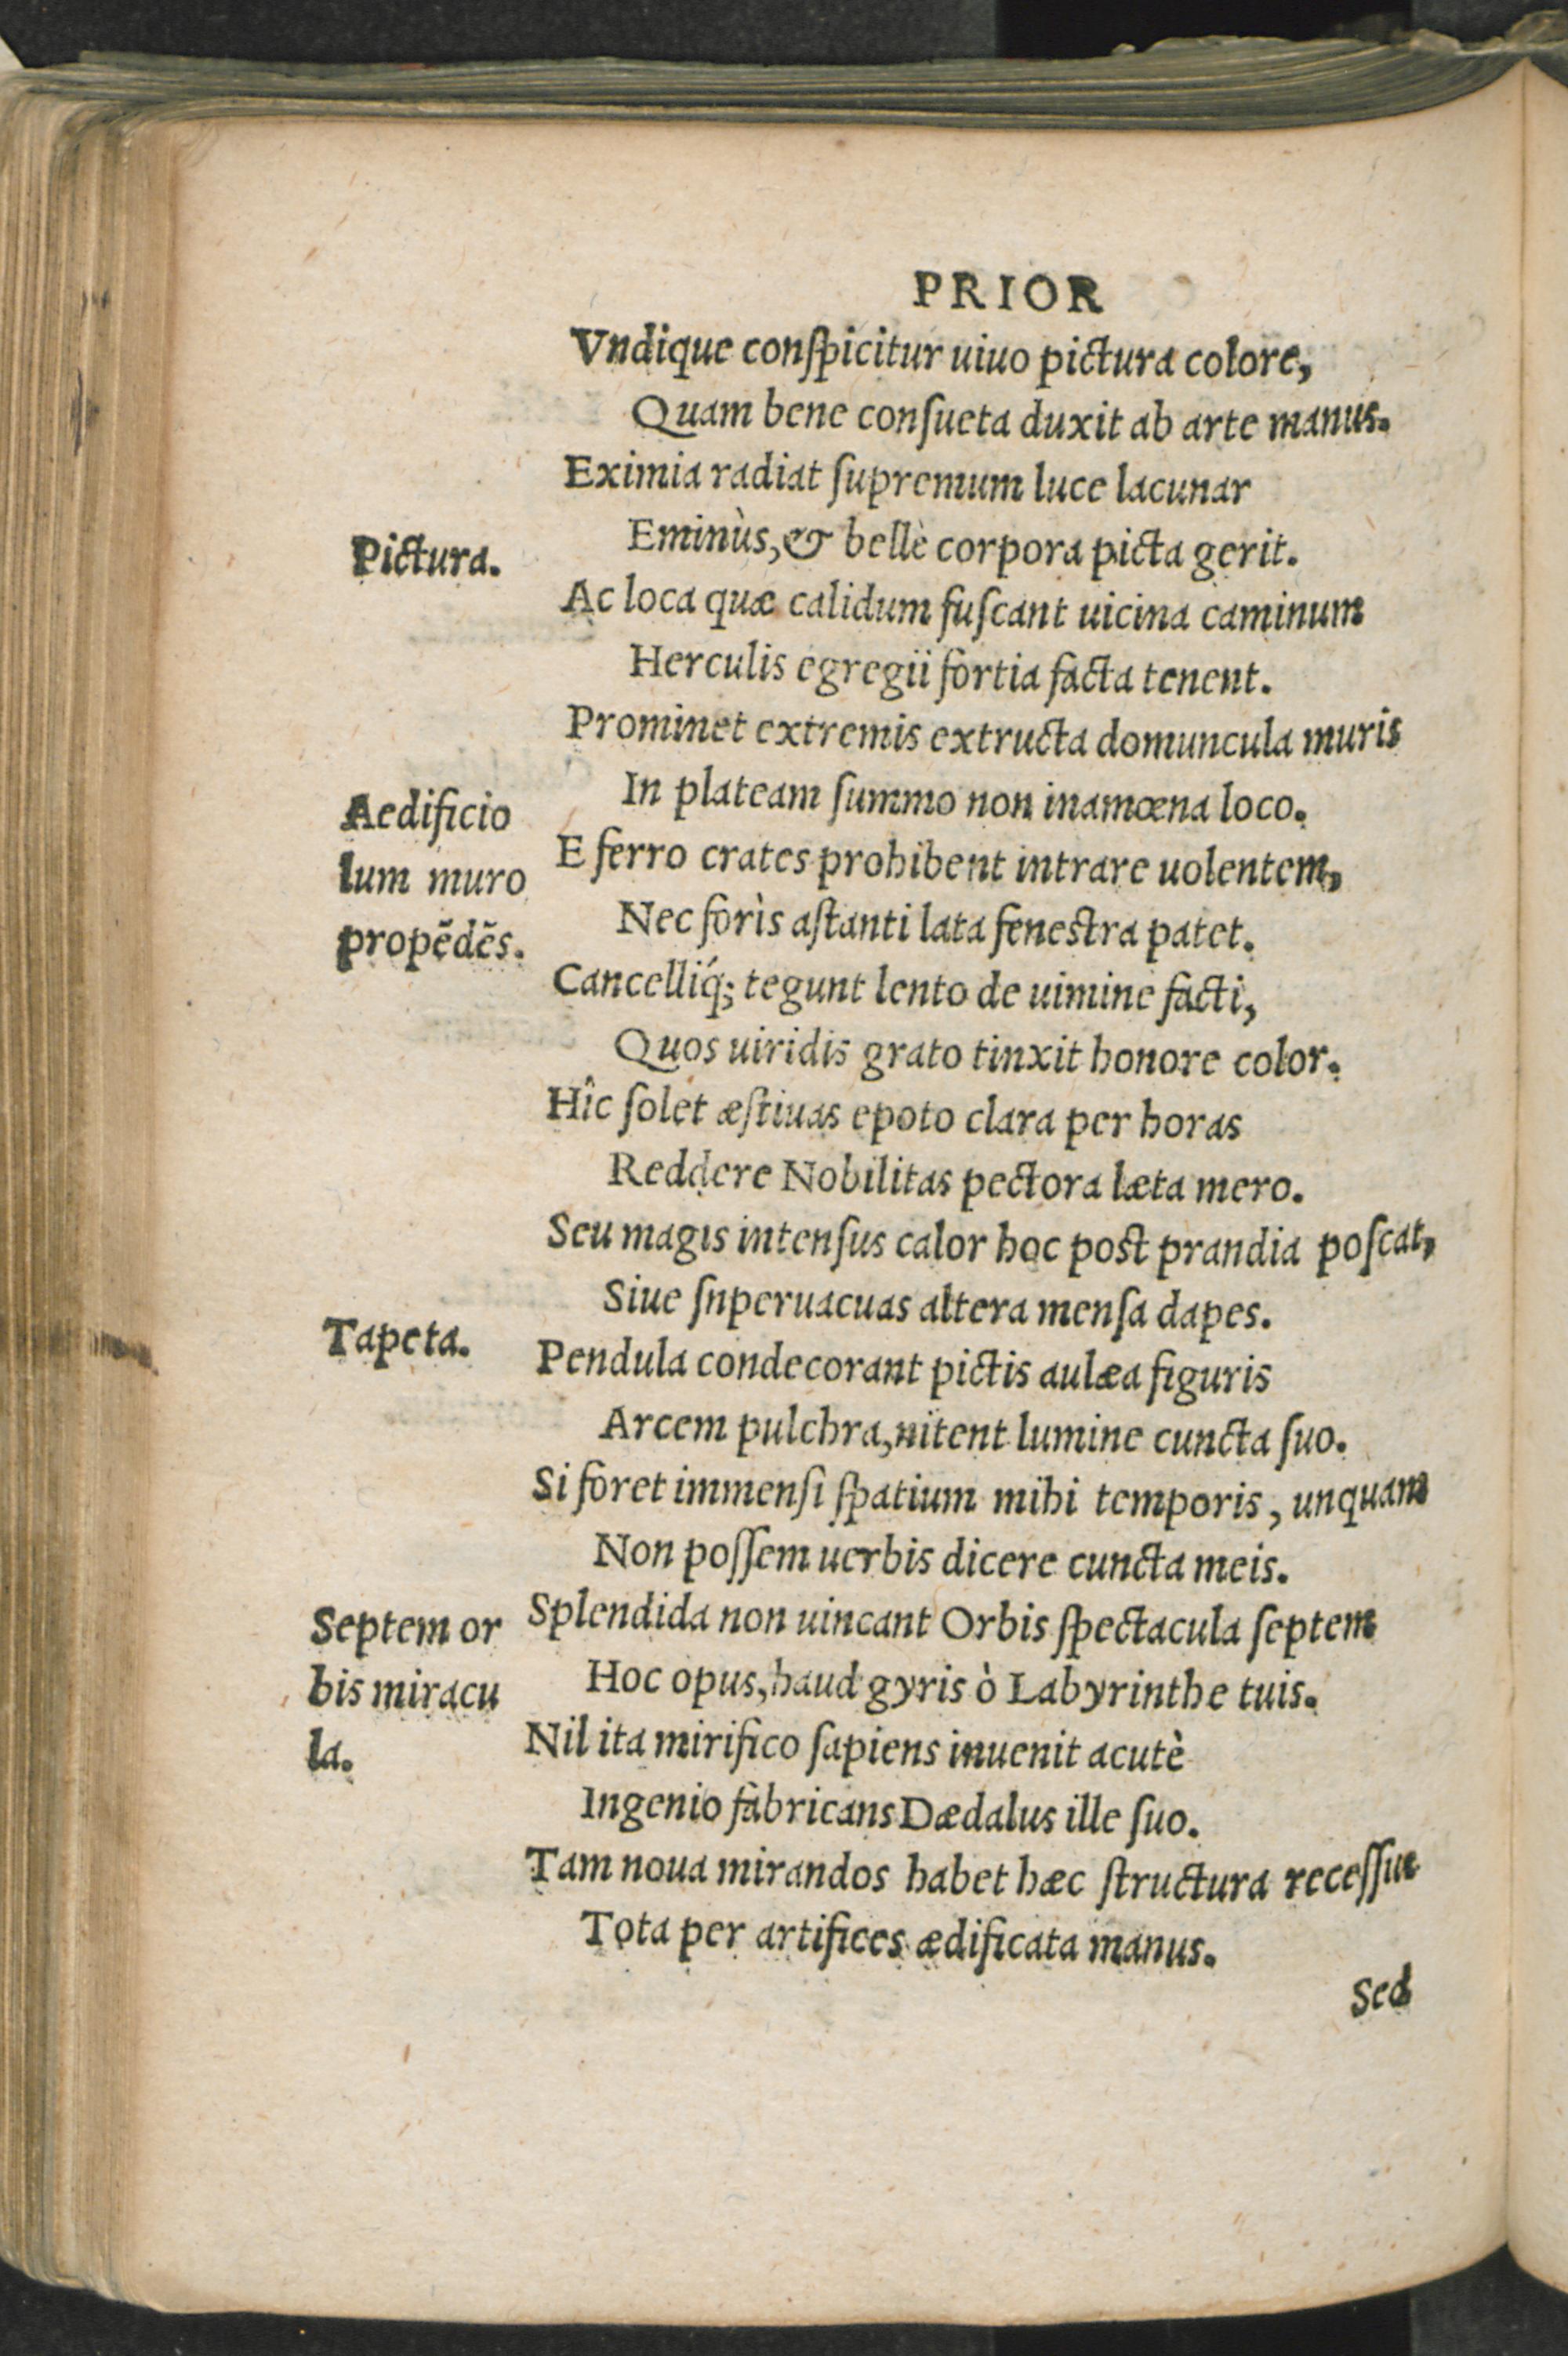 PRIOR
Vndique conſpicitur uiuo pictura colore,
Quam bene conſueta duxit ab arte manus.
Eximia radiat ſupremum luce lacunar
Pictura.
Eminùs, & bellè corpora picta gerit.
Ac loca quæ calidum fuſcant uicina caminum
Herculis egregii fortia facta tenent.
Prominet extremis extructa domuncula muris
In plateam ſummo non inamœna loco.
Aedificio
lum muro
propēdēs.
E ferro crates prohibent intrare uolentem,
Nec forìs aſtanti lata feneſtra patet.
Cancelliq́; tegunt lento de uimine facti,
Quos uiridis grato tinxit honore color.
Hîc ſolet æſtiuas epoto clara per horas
Reddere Nobilitas pectora læta mero.
Seu magis intenſus calor hoc poſt prandia poſcat,
Siue ſnperuacuas altera menſa dapes.
Tapeta.
Pendula condecorant pictis aulæa figuris
Arcem pulchra, nitent lumine cuncta ſuo.
Si foret immenſi ſpatium mihi temporis, unquam
Non poſſem uerbis dicere cuncta meis.
Septem or
bis miracu
la.
Splendida non uincant Orbis ſpectacula ſeptem
Hoc opus, haud gyris ò Labyrinthe tuis.
Nil ita mirifico ſapiens inuenit acutè
Ingenio fabricans Dædalus ille ſuo.
Tam noua mirandos habet hæc ſtructura receſſus
Tota per artifices ædificata manus.
Sed